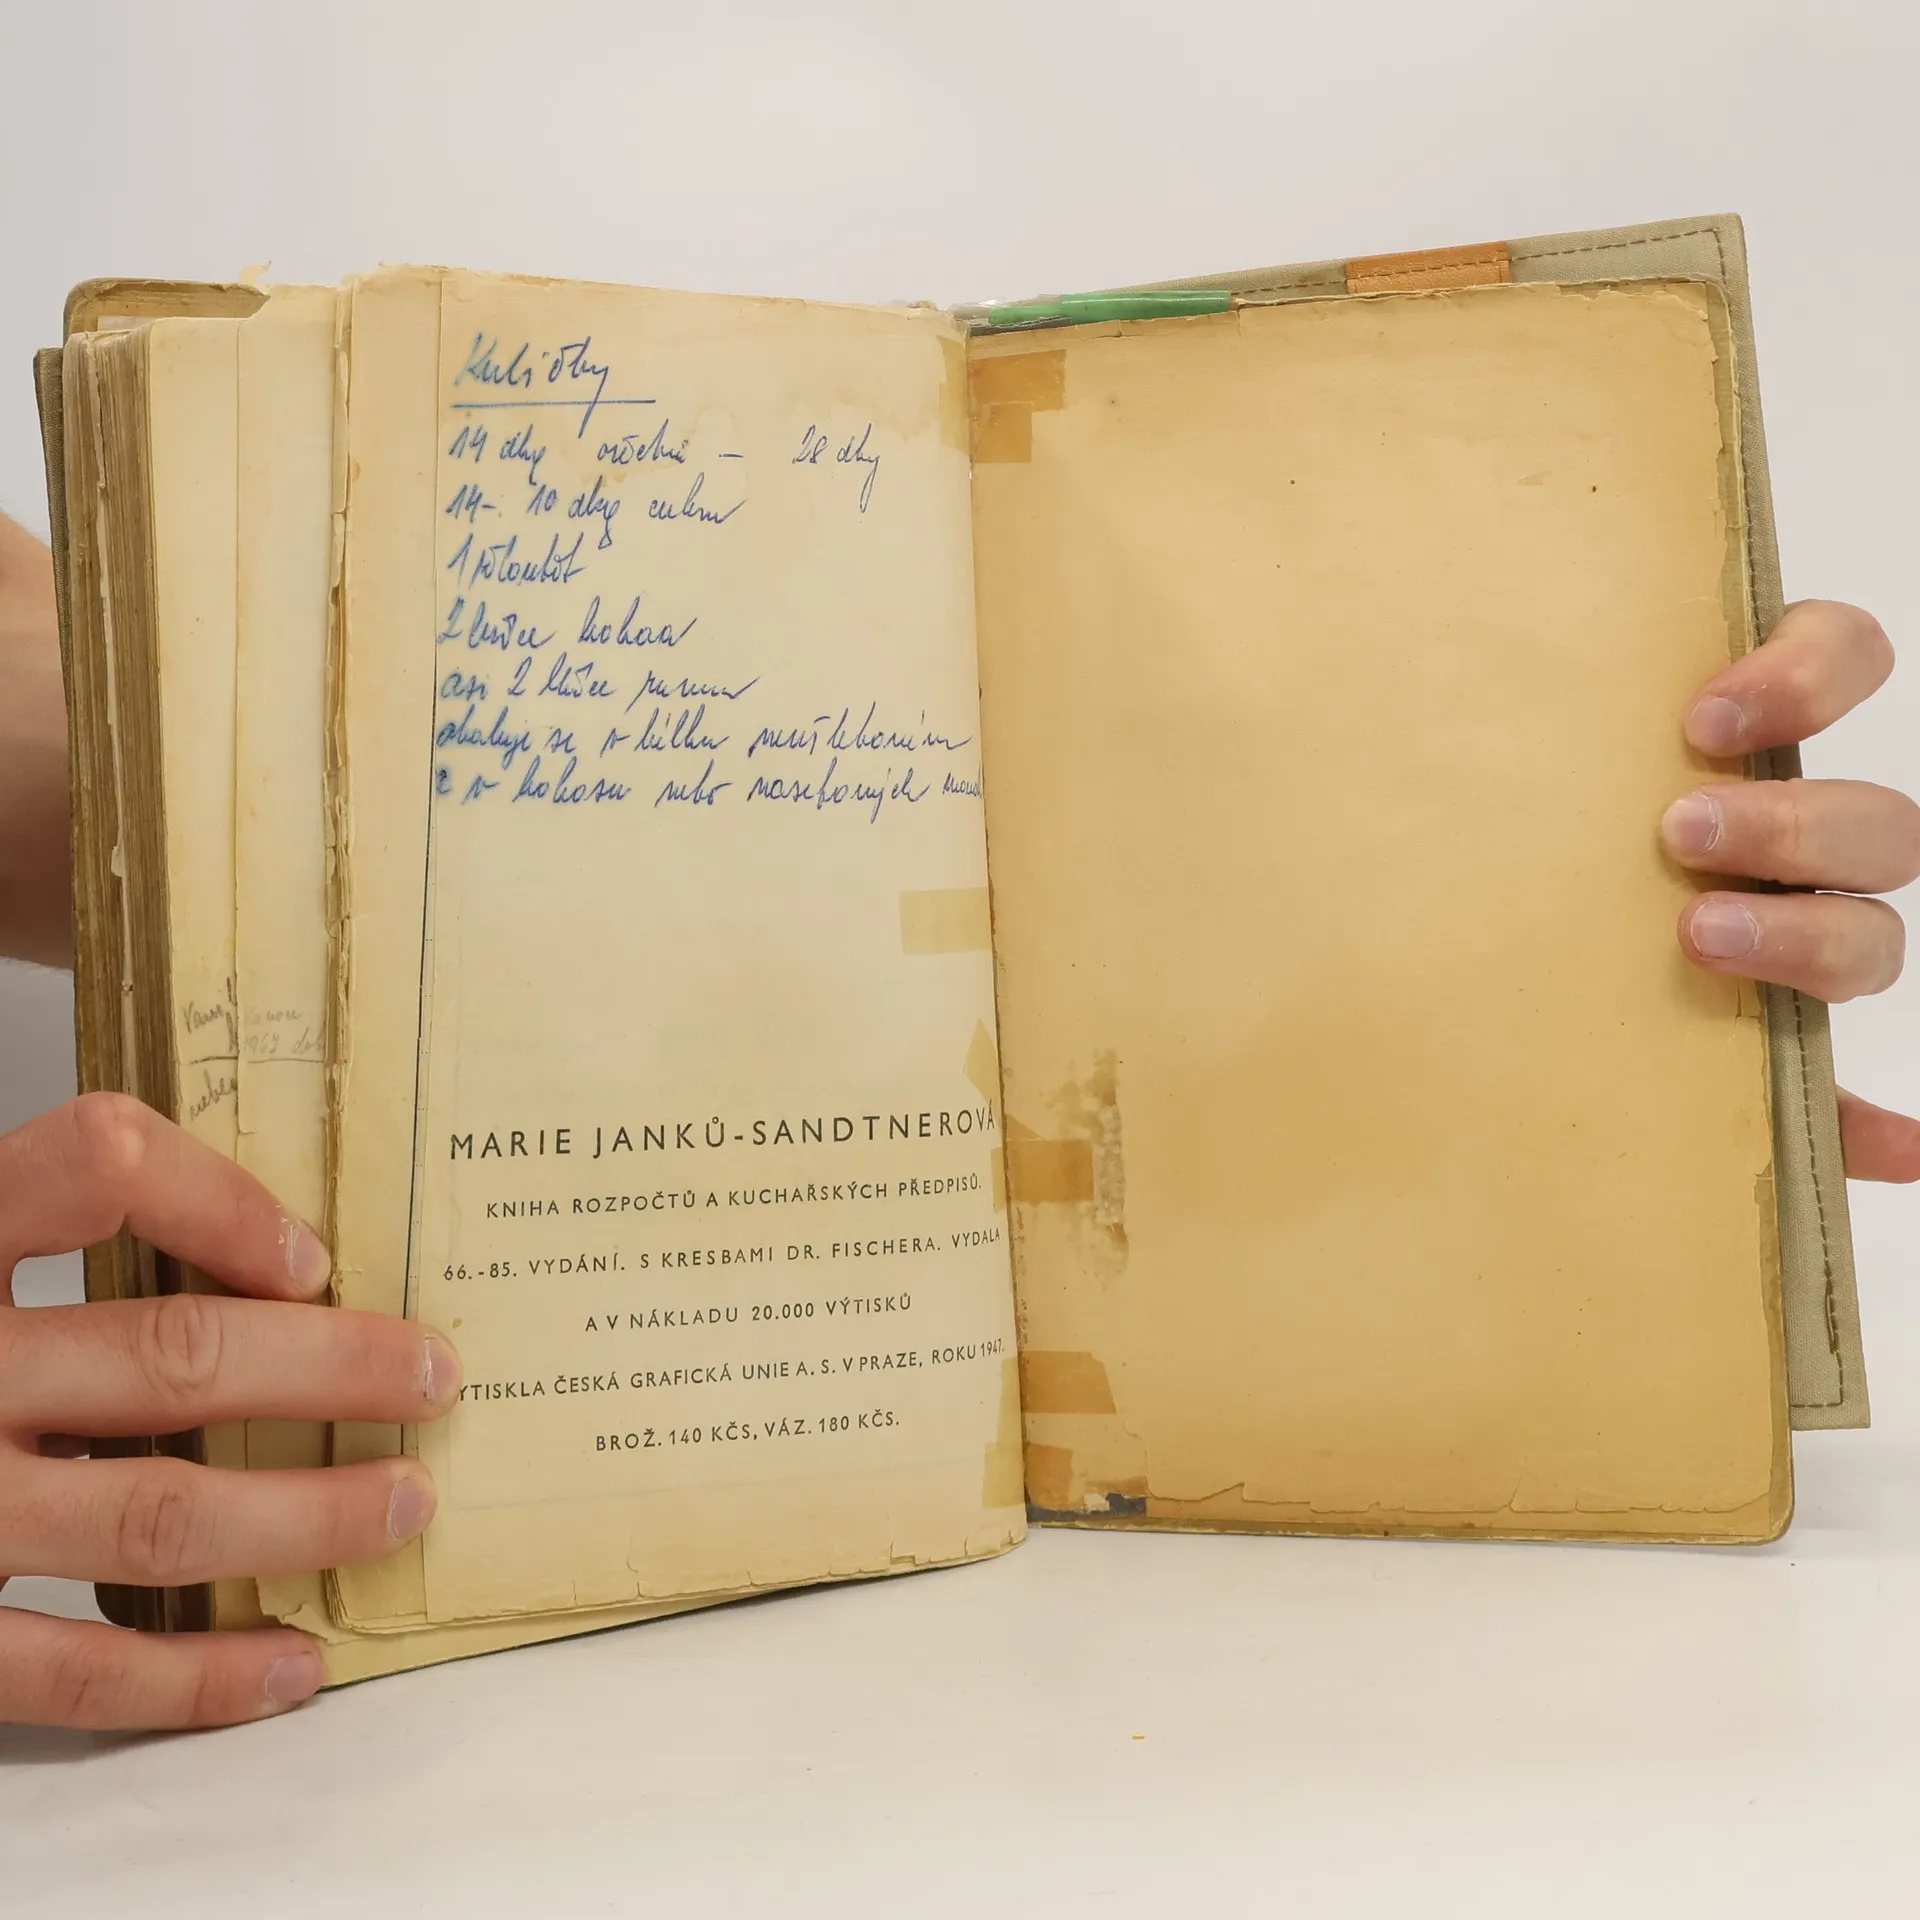 Kuličky
14 dkg ořechů – 28 dkg
14-10 dkg cukru
1 žloutek
2 lžíce kakaa
asi 2 lžíce rumu
obaluje se v bílku neušlehaném
a v kokosu nebo nasekaných
1967
MARIE JANKŮ-SANDTNEROVÁ
KNIHA ROZPOČTŮ A KUCHAŘSKÝCH PŘEDPISŮ.
66.-85. VYDÁNÍ. S KRESBAMI DR. FISCHERA. VYDALA
A V NÁKLADU 20.000 VÝTISKŮ
YTISKLA ČESKÁ GRAFICKÁ UNIE A. S. V PRAZE, ROKU 1947.
BROŽ. 140 KČS, VÁZ. 180 KČS.